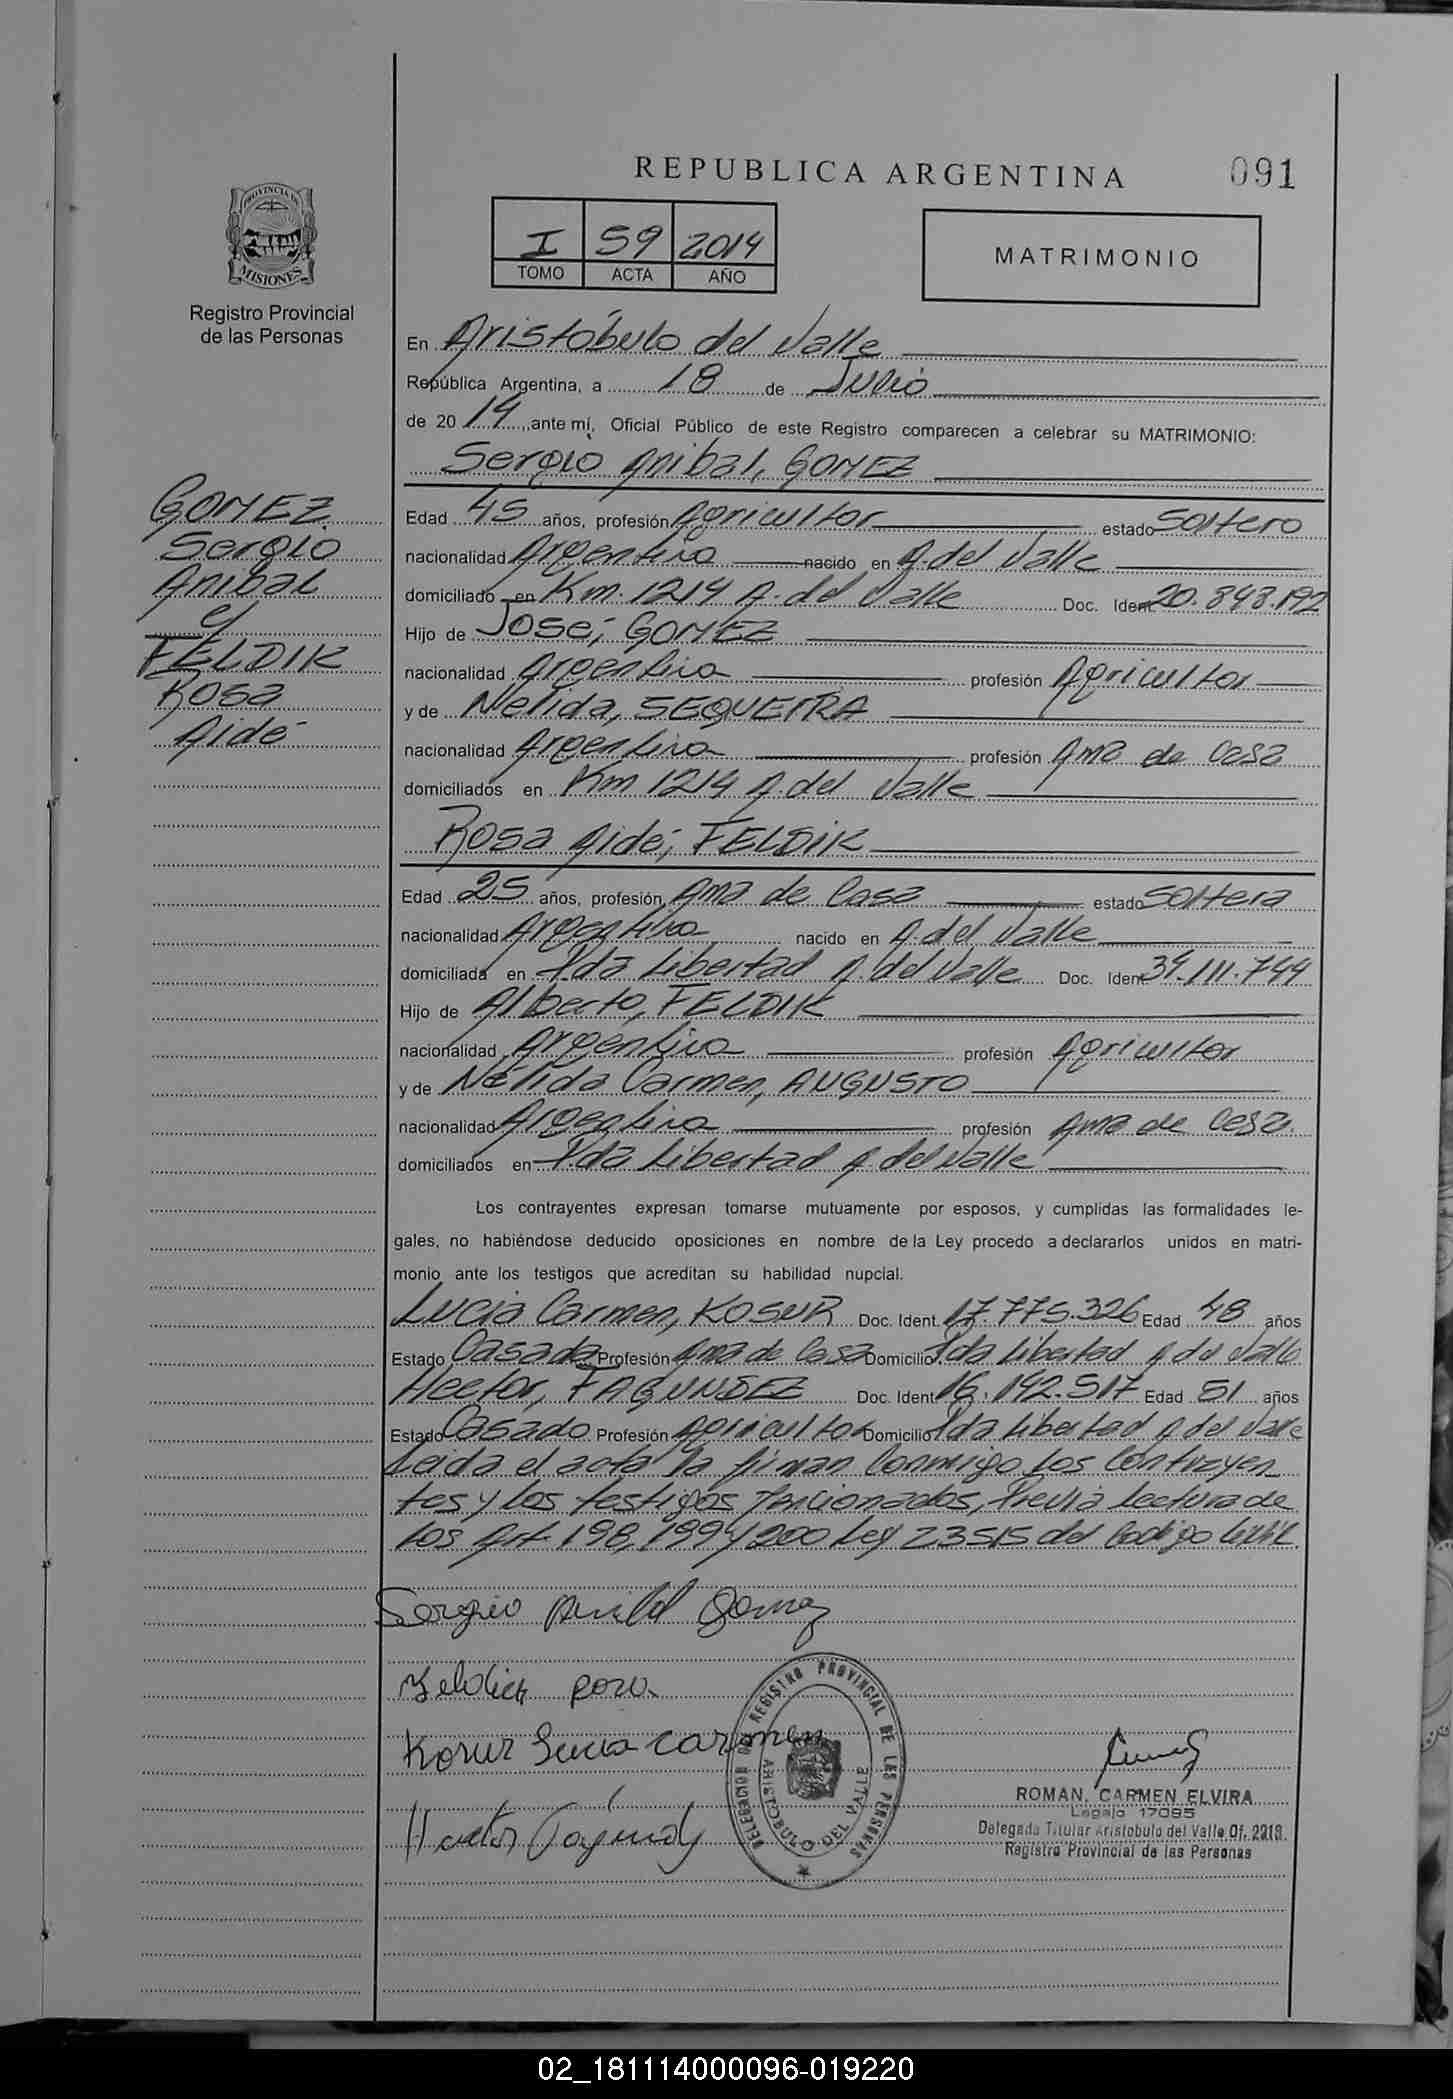 REPUBLICA ARGENTINA
091
PROVINCIA DE
MISIONES
Registro Provincial
de las Personas
I 59 2014
TOMO ACTA AÑO
MATRIMONIO
En Aristóbulo del Valle
República Argentina, a 18 de Julio
de 2014, ante mí, Oficial Público de este Registro comparecen a celebrar su MATRIMONIO:
Sergio Anibal, GOMEZ
GOMEZ
Sergio
Anibal
y
FELDIK
Rosa
Aidé
Edad 45 años, profesión Agricultor estado Soltero
nacionalidad Argentina nacido en A. del Valle
domiciliado en Km. 1214 A. del Valle Doc. Ident 20.848.192
Hijo de José, GOMEZ
nacionalidad Argentina profesión Agricultor
y de Nélida, SEQUEIRA
nacionalidad Argentina profesión Ama de Casa
domiciliados en Km 1214 A. del Valle
Rosa Aidé, FELDIK
Edad 25 años, profesión Ama de Casa estado Soltera
nacionalidad Argentina nacido en A. del Valle
domiciliada en Pda Libertad A. del Valle Doc. Ident 34.111.744
Hijo de Alberto, FELDIK
nacionalidad Argentina profesión Agricultor
y de Nélida Carmen, AUGUSTO
nacionalidad Argentina profesión Ama de Casa.
domiciliados en Pda Libertad A. del Valle
Los contrayentes expresan tomarse mutuamente por esposos, y cumplidas las formalidades le-
gales, no habiéndose deducido oposiciones en nombre de la Ley procedo a declararlos unidos en matri-
monio ante los testigos que acreditan su habilidad nupcial.
Lucia Carmen, KOSUR Doc. Ident. 17.775.326 Edad 48 años
Estado Casada Profesión Ama de Casa Domicilio Pda Libertad A del Valle
Hector, FAGUNDEZ Doc. Ident 16.192.517 Edad 51 años
Estado Casado Profesión Agricultor Domicilio Pda Libertad A del Valle
Leida el acta la firman Conmigo los Contrayen
tes y los testigos mencionados, Previa lectura de
los Art 198, 199 y 200 Ley 23515 del Codigo Civil.
Sergio Anibal Gomez
Feldick Rosa
Kosur Lucia Carmen
Hector Fagundez
DELEGACION DEL REGISTRO PROVINCIAL DE LAS PERSONAS
ARISTOBULO DEL VALLE
ROMAN, CARMEN ELVIRA
Legajo 17095
Delegada Titular Aristobulo del Valle Of. 2213.
Registro Provincial de las Personas
02_181114000096-019220